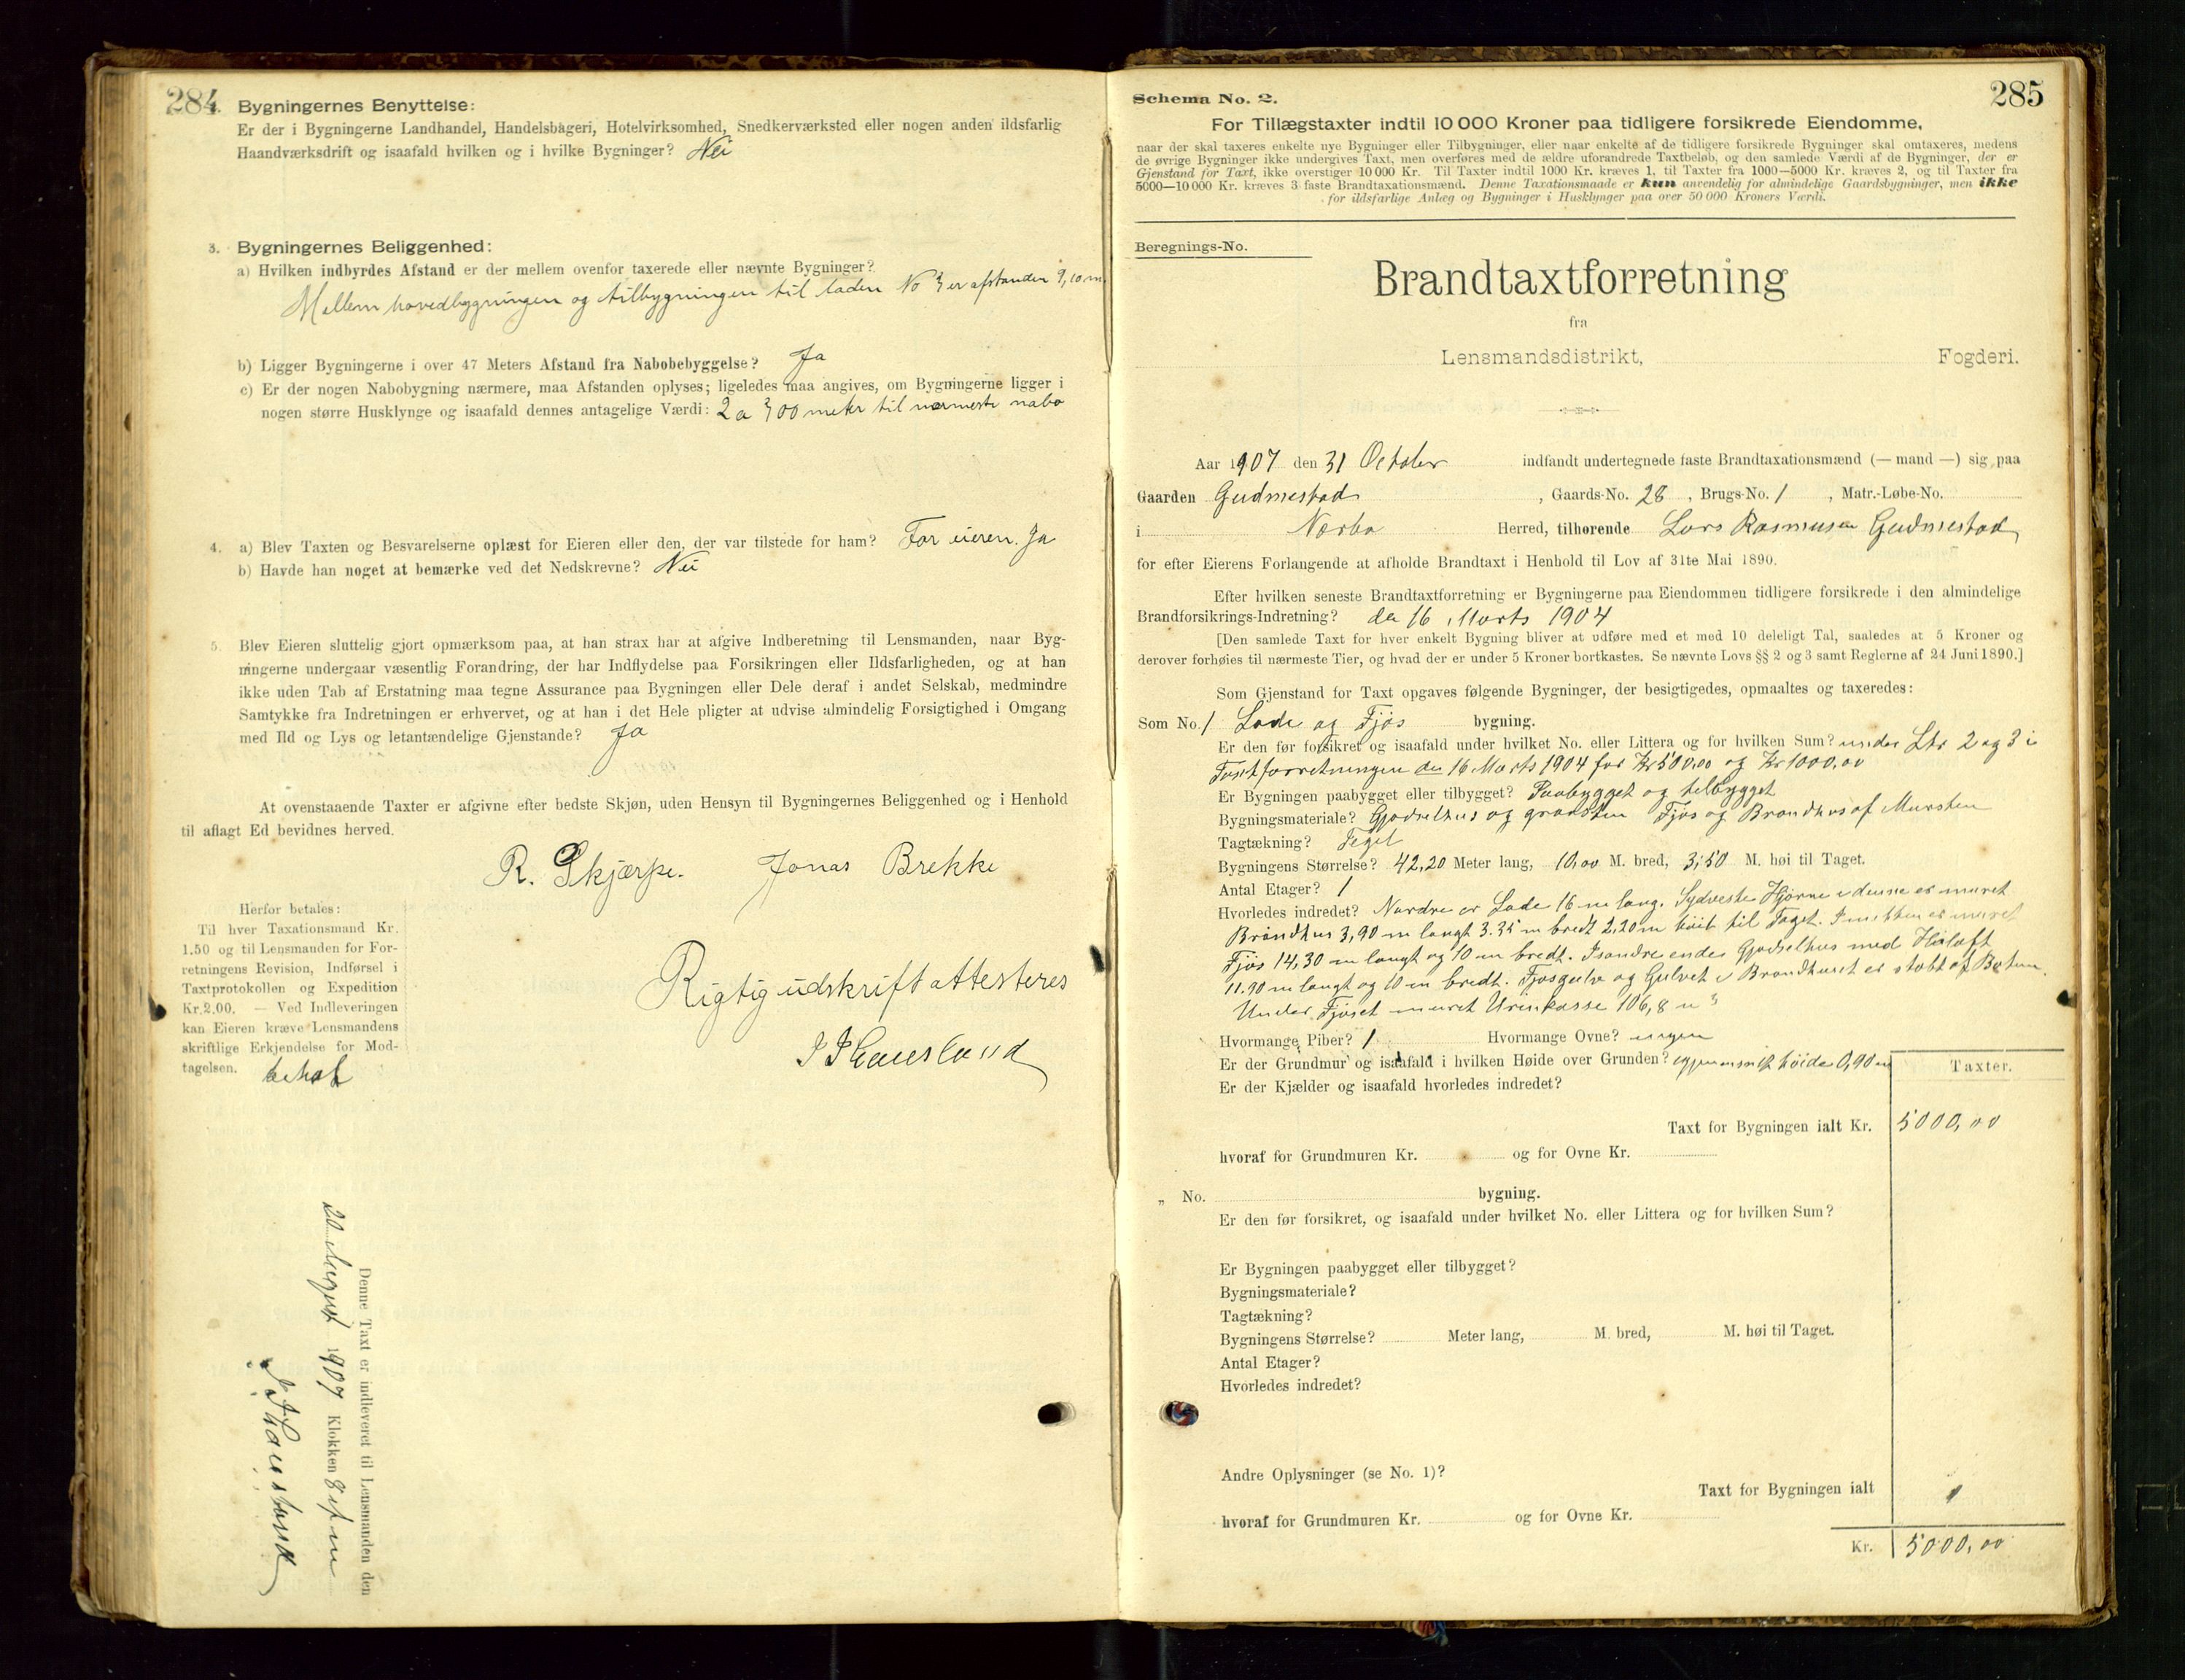 284.
Bygningernes Benyttelse:
Er der i Bygningerne Landhandel, Handelsbageri, Hotelvirksomhed, Snedkerværksted eller nogen anden ildsfarlig
Haandværksdrift og isaafald hvilken og i hvilke Bygninger? Nei
3. Bygningernes Beliggenhed:
a) Hvilken indbyrdes Afstand er der mellem ovenfor taxerede eller nævnte Bygninger?
Mellem hovedbygningen og tilbygningen til laden No 3 er afstanden 9,10 m.
b) Ligger Bygningerne i over 47 Meters Afstand fra Nabobebyggelse? Ja
c) Er der nogen Nabobygning nærmere, maa Afstanden oplyses; ligeledes maa angives, om Bygningerne ligger i
nogen større Husklynge og isaafald dennes antagelige Værdi: 2 a 300 meter til nærmeste nabo
4. a) Blev Taxten og Besvarelserne oplæst for Eieren eller den, der var tilstede for ham? For eieren. Ja
b) Havde han noget at bemærke ved det Nedskrevne? Nei
5. Blev Eieren sluttelig gjort opmærksom paa, at han strax har at afgive Indberetning til Lensmanden, naar Byg-
ningerne undergaar væsentlig Forandring, der har Indflydelse paa Forsikringen eller Ildsfarligheden, og at han
ikke uden Tab af Erstatning maa tegne Assurance paa Bygningen eller Dele deraf i andet Selskab, medmindre
Samtykke fra Indretningen er erhvervet, og at han i det Hele pligter at udvise almindelig Forsigtighed i Omgang
med Ild og Lys og letantændelige Gjenstande? Ja
At ovenstaaende Taxter er afgivne efter bedste Skjøn, uden Hensyn til Bygningernes Beliggenhed og i Henhold
til aflagt Ed bevidnes herved.
R. Skjærpe. Jonas Brekke
Herfor betales:
Til hver Taxationsmand Kr.
1.50 og til Lensmanden for For-
retningens Revision, Indførsel i
Taxtprotokollen og Expedition
Kr. 2.00. — Ved Indleveringen
kan Eieren kræve Lensmandens
skriftlige Erkjendelse for Mod-
tagelsen. betalt
Rigtig udskrift attesteres
Denne Taxt er indleveret til Lensmanden den
20 August 1907 Klokken 8
285
Schema No. 2.
For Tillægstaxter indtil 10 000 Kroner paa tidligere forsikrede Eiendomme,
naar der skal taxeres enkelte nye Bygninger eller Tilbygninger, eller naar enkelte af de tidligere forsikrede Bygninger skal omtaxeres, medens
de øvrige Bygninger ikke undergives Taxt, men overføres med de ældre uforandrede Taxtbeløb, og den samlede Værdi af de Bygninger, der er
Gjenstand for Taxt, ikke overstiger 10 000 Kr. Til Taxter indtil 1000 Kr. kræves 1, til Taxter fra 1000—5000 Kr. kræves 2, og til Taxter fra
5000—10 000 Kr. kræves 3 faste Brandtaxationsmænd. Denne Taxationsmaade er kun anvendelig for almindelige Gaardsbygninger, men ikke
for ildsfarlige Anlæg og Bygninger i Husklynger paa over 50 000 Kroners Værdi.
Beregnings-No.
Brandtaxtforretning
fra
Lensmandsdistrikt, Fogderi.
Aar 1907 den 31 October indfandt undertegnede faste Brandtaxationsmænd (— mand —) sig paa
Gaarden Gudmestad, Gaards-No. 28, Brugs-No. 1, Matr.-Løbe-No.
i Nærbø Herred, tilhørende Lars Rasmusen Gudmestad
for efter Eierens Forlangende at afholde Brandtaxt i Henhold til Lov af 31te Mai 1890.
Efter hvilken seneste Brandtaxtforretning er Bygningerne paa Eiendommen tidligere forsikrede i den almindelige
Brandforsikrings-Indretning? de 16 Marts 1904
[Den samlede Taxt for hver enkelt Bygning bliver at udføre med et med 10 deleligt Tal, saaledes at 5 Kroner og
derover forhøies til nærmeste Tier, og hvad der er under 5 Kroner bortkastes. Se nævnte Lovs §§ 2 og 3 samt Reglerne af 24 Juni 1890.]
Som Gjenstand for Taxt opgaves følgende Bygninger, der besigtigedes, opmaaltes og taxeredes:
Som No. 1 Lade og Fjøs bygning.
Er den før forsikret og isaafald under hvilket No. eller Littera og for hvilken Sum? under Ltr 2 og 3 i
Taxtforretningen den 16 Marts 1904 for Kr 500,00 og Kr 1000,00
Er Bygningen paabygget eller tilbygget? Paabygget og tilbygget
Bygningsmateriale? Gjødselhus og graasten Fjøs og Brandhus af Mursten
Tagtækning? Tegel
Bygningens Størrelse? 42,20 Meter lang, 10,00 M. bred, 3,50 M. høi til Taget.
Antal Etager? 1
Hvorledes indredet? Nordre er Lade 16 m lang. Sydveste Hjørne i denne er muret
Brandhus 3,90 m langt 3.35 m bredt 2,20 m høit til Taget. I midten er muret
Fjøs 14,30 m langt og 10 m bredt. I søndre ende Gjødselhus med Høloft
11.90 m langt og 10 m bredt. Fjøsgulv og Gulvet i Brandhuset er støbt af Betun.
Under Fjøset muret Urinkasse 106,8 m³
Hvormange Piber? 1 Hvormange Ovne? ingen
Er der Grundmur og isaafald i hvilken Høide over Grunden? høide 0,90 m
Er der Kjælder og isaafald hvorledes indredet?
Taxter.
Taxt for Bygningen ialt Kr. 5000,00
hvoraf for Grundmuren Kr. og for Ovne Kr.
„ No. bygning.
Er den før forsikret, og isaafald under hvilket No. eller Littera og for hvilken Sum?
Er Bygningen paabygget eller tilbygget?
Bygningsmateriale?
Tagtækning?
Bygningens Størrelse? Meter lang, M. bred, M. høi til Taget.
Antal Etager?
Hvorledes indredet?
Andre Oplysninger (se No. 1)?
Taxt for Bygningen ialt
hvoraf for Grundmuren Kr. og for Ovne Kr.
Kr. 5000,00